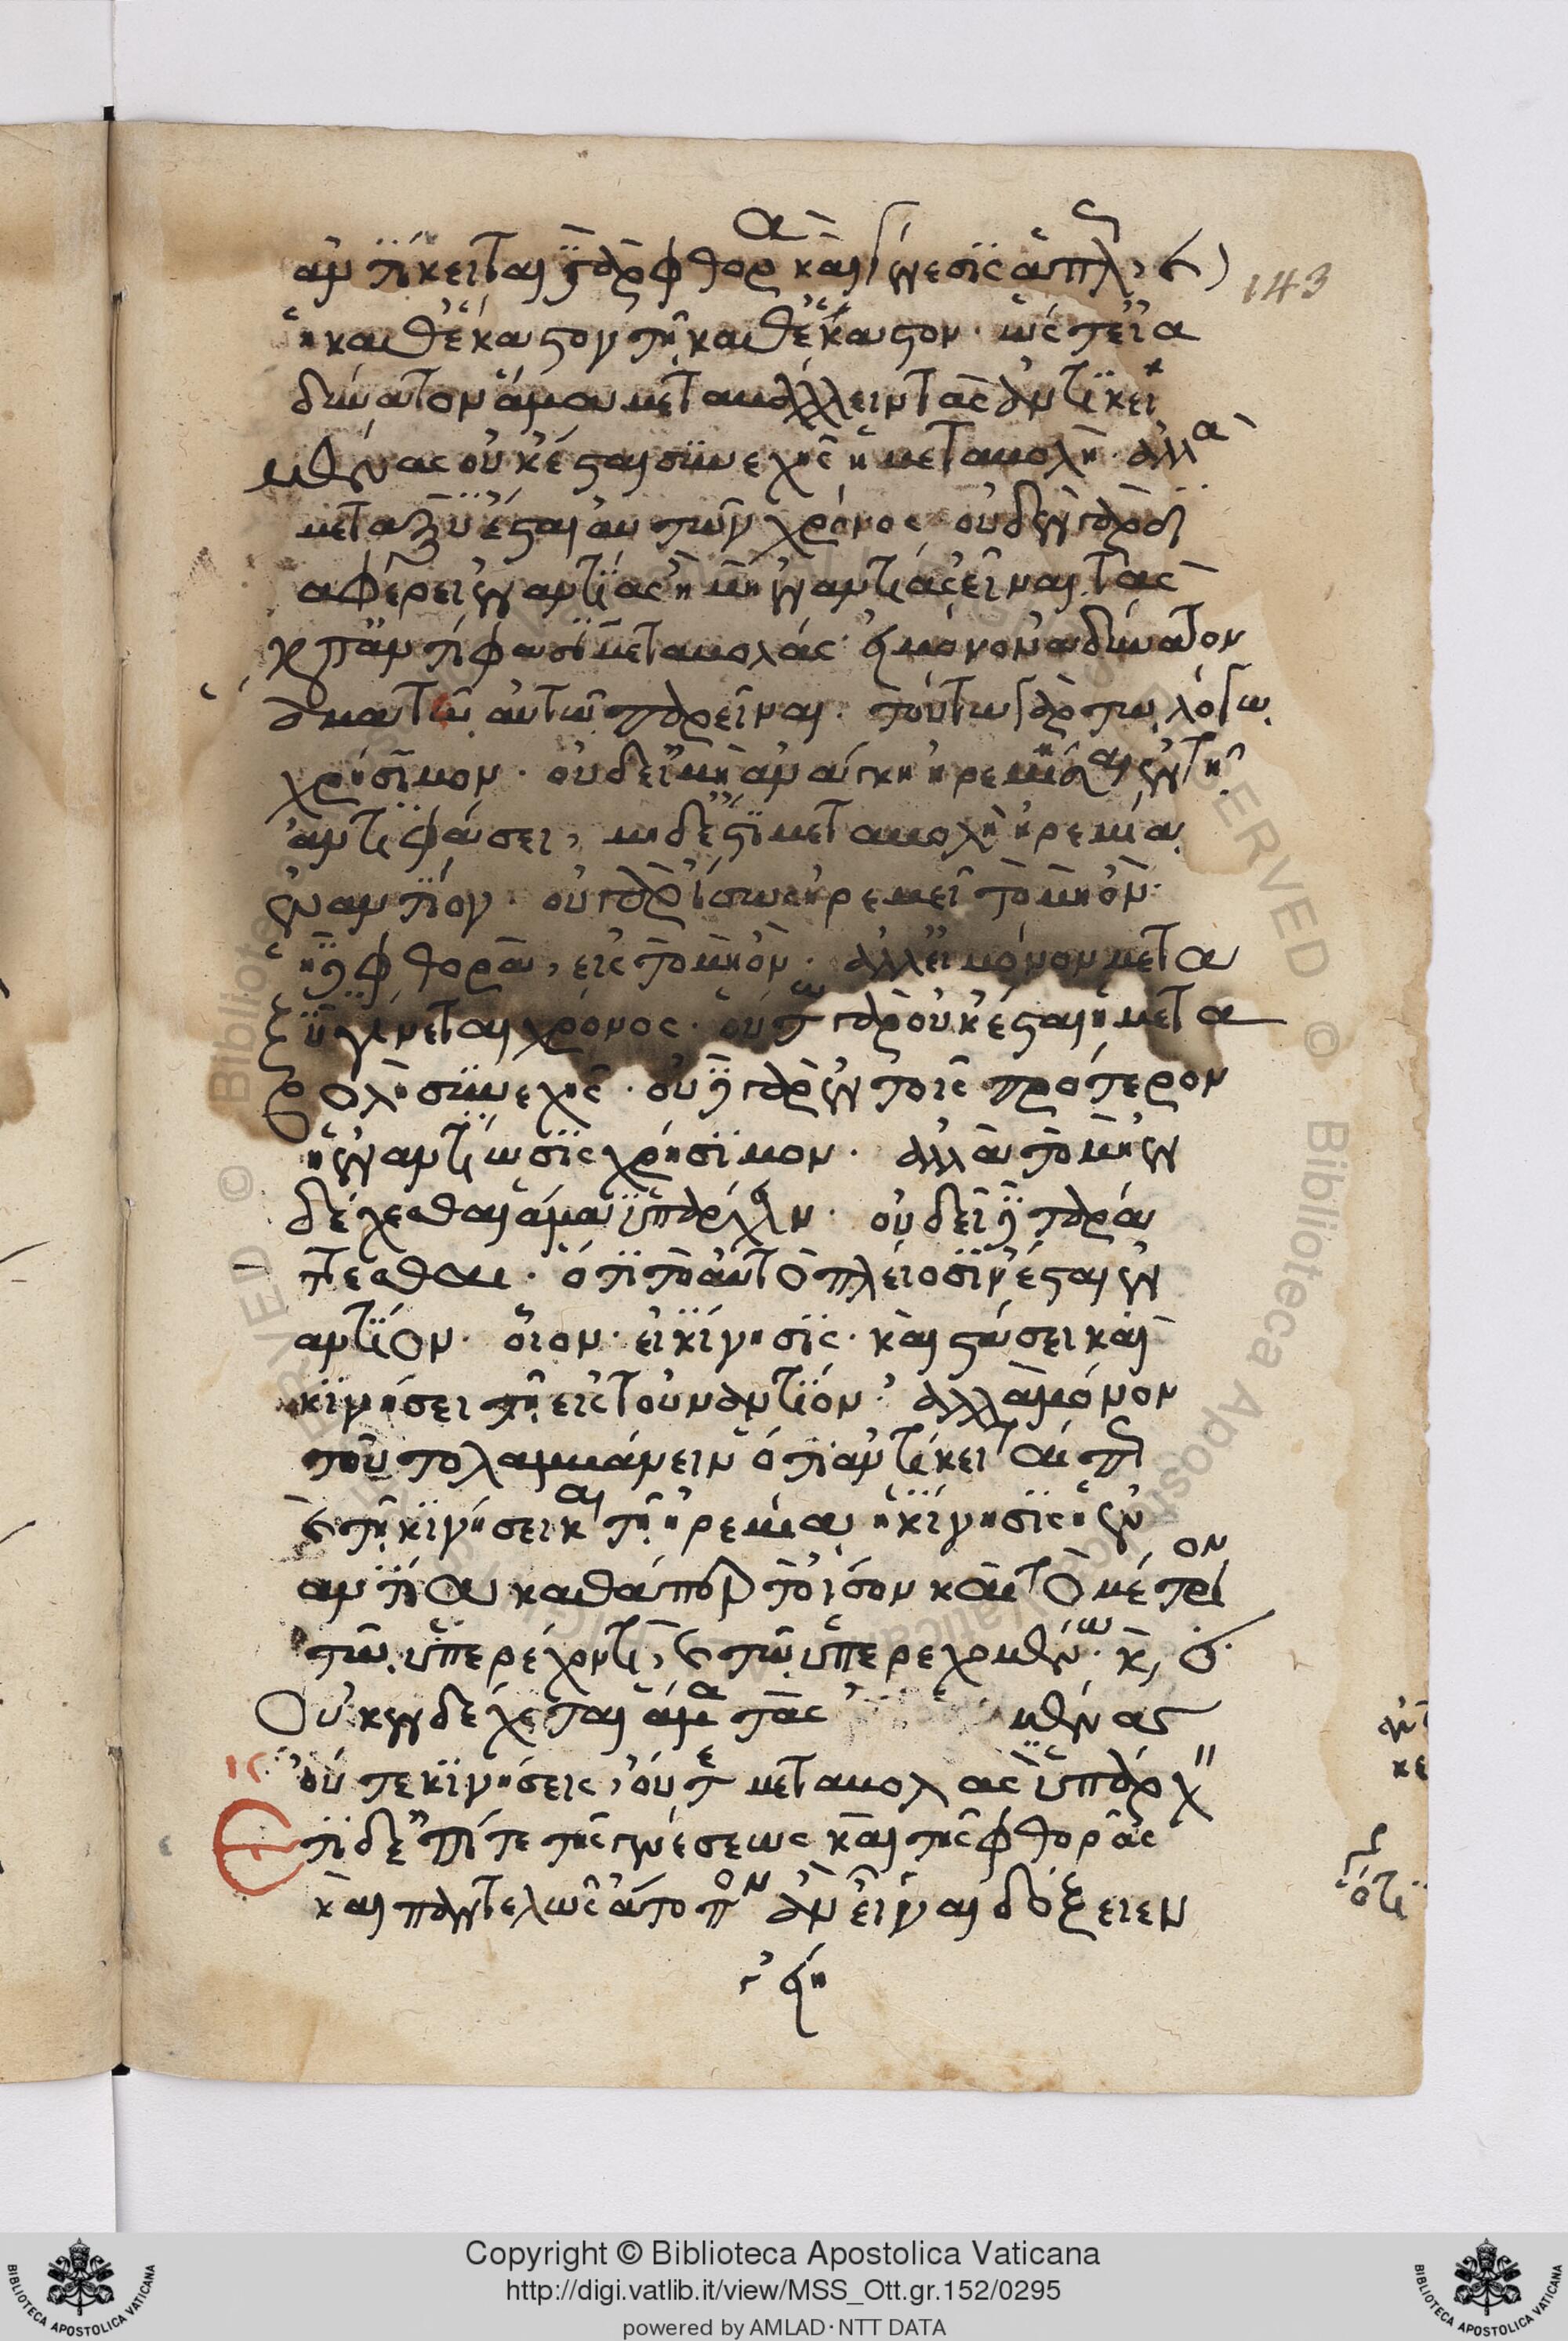 ἀντίκειται γὰρ φθορὰ καὶ γένεσις ἁπλῶς καὶ
ἡ καθέκαστον τῇ καθέκαστον. ὥστ' εἰ ἀ
δύνατον ἅμα μεταβάλλειν τὰς ἀντικει
μένας οὐκ ἔσται συνεχὴς ἡ μεταβολή. ἀλλὰ
μεταξὺ ἔσται αὐτῶν χρόνος οὐδὲν γὰρ δι
αφέρει ἐναντίας ἢ μὴ ἐναντίας εἶναι τὰς
κατ' ἀντίφασιν μεταβολάς. εἰ μόνον ἀδύνατον
ἅμα τῷ αὐτῷ παρεῖναι. τοῦτο γὰρ τῷ λόγῳ
χρήσιμον. οὐδ' εἰ μὴ ἀνάγκη ἠρεμῆσαι ἐν τῇ
ἀντιφάσει, μηδ' ἐστὶ μεταβολὴ ἠρεμίᾳ
ἐναντίον. οὐ γὰρ ἴσως ἠρεμεῖ τὸ μὴ ὄν.
ἡ δὲ φθορὰ, εἰς τὸ μὴ ὄν. ἀλλ' εἰ μόνον μετα
ξὺ γίνεται χρόνος. οὕτω γὰρ οὐκ ἔσται ἡ μετα
βολὴ συνεχής. οὐδὲ γὰρ ἐν τοῖς πρότερον
ἡ ἐναντίωσις χρήσιμον. ἀλλὰ τὸ μὴ ἐν
δέχεσθαι ἅμα ὑπάρχειν. οὐ δεῖ δὲ ταρά
τεσθαι. ὅτι τὸ αὐτὸ πλείοσιν ἔσται ἐν
αντίον. οἷον. εἰ κίνησις. καὶ στάσει καὶ
κινήσει τῇ εἰς τοὐναντίον. ἀλλὰ μόνον
τοῦτο λαμβάνειν ὅτι ἀντίκειταί πως
καὶ τῇ κινήσει καὶ τῇ ἠρεμίᾳ ἡ κίνησις ἡ ἐν
αντία καθάπερ τὸ ἴσον καὶ τὸ μέτριον
τῷ ὑπερέχοντι, καὶ τῷ ὑπερεχομένῳ. καὶ, ὅτι
Οὐκ ἐνδέχεται ἅμα τὰς μένας
οὔτε κινήσεις, οὔτε μεταβολὰς ὑπάρχειν
Ἔτι δ' ἐπί τε τῆς γενέσεως καὶ τῆς φθορᾶς
καὶ παντελῶς ἄτοπον ἂν εἶναι δόξειεν
143